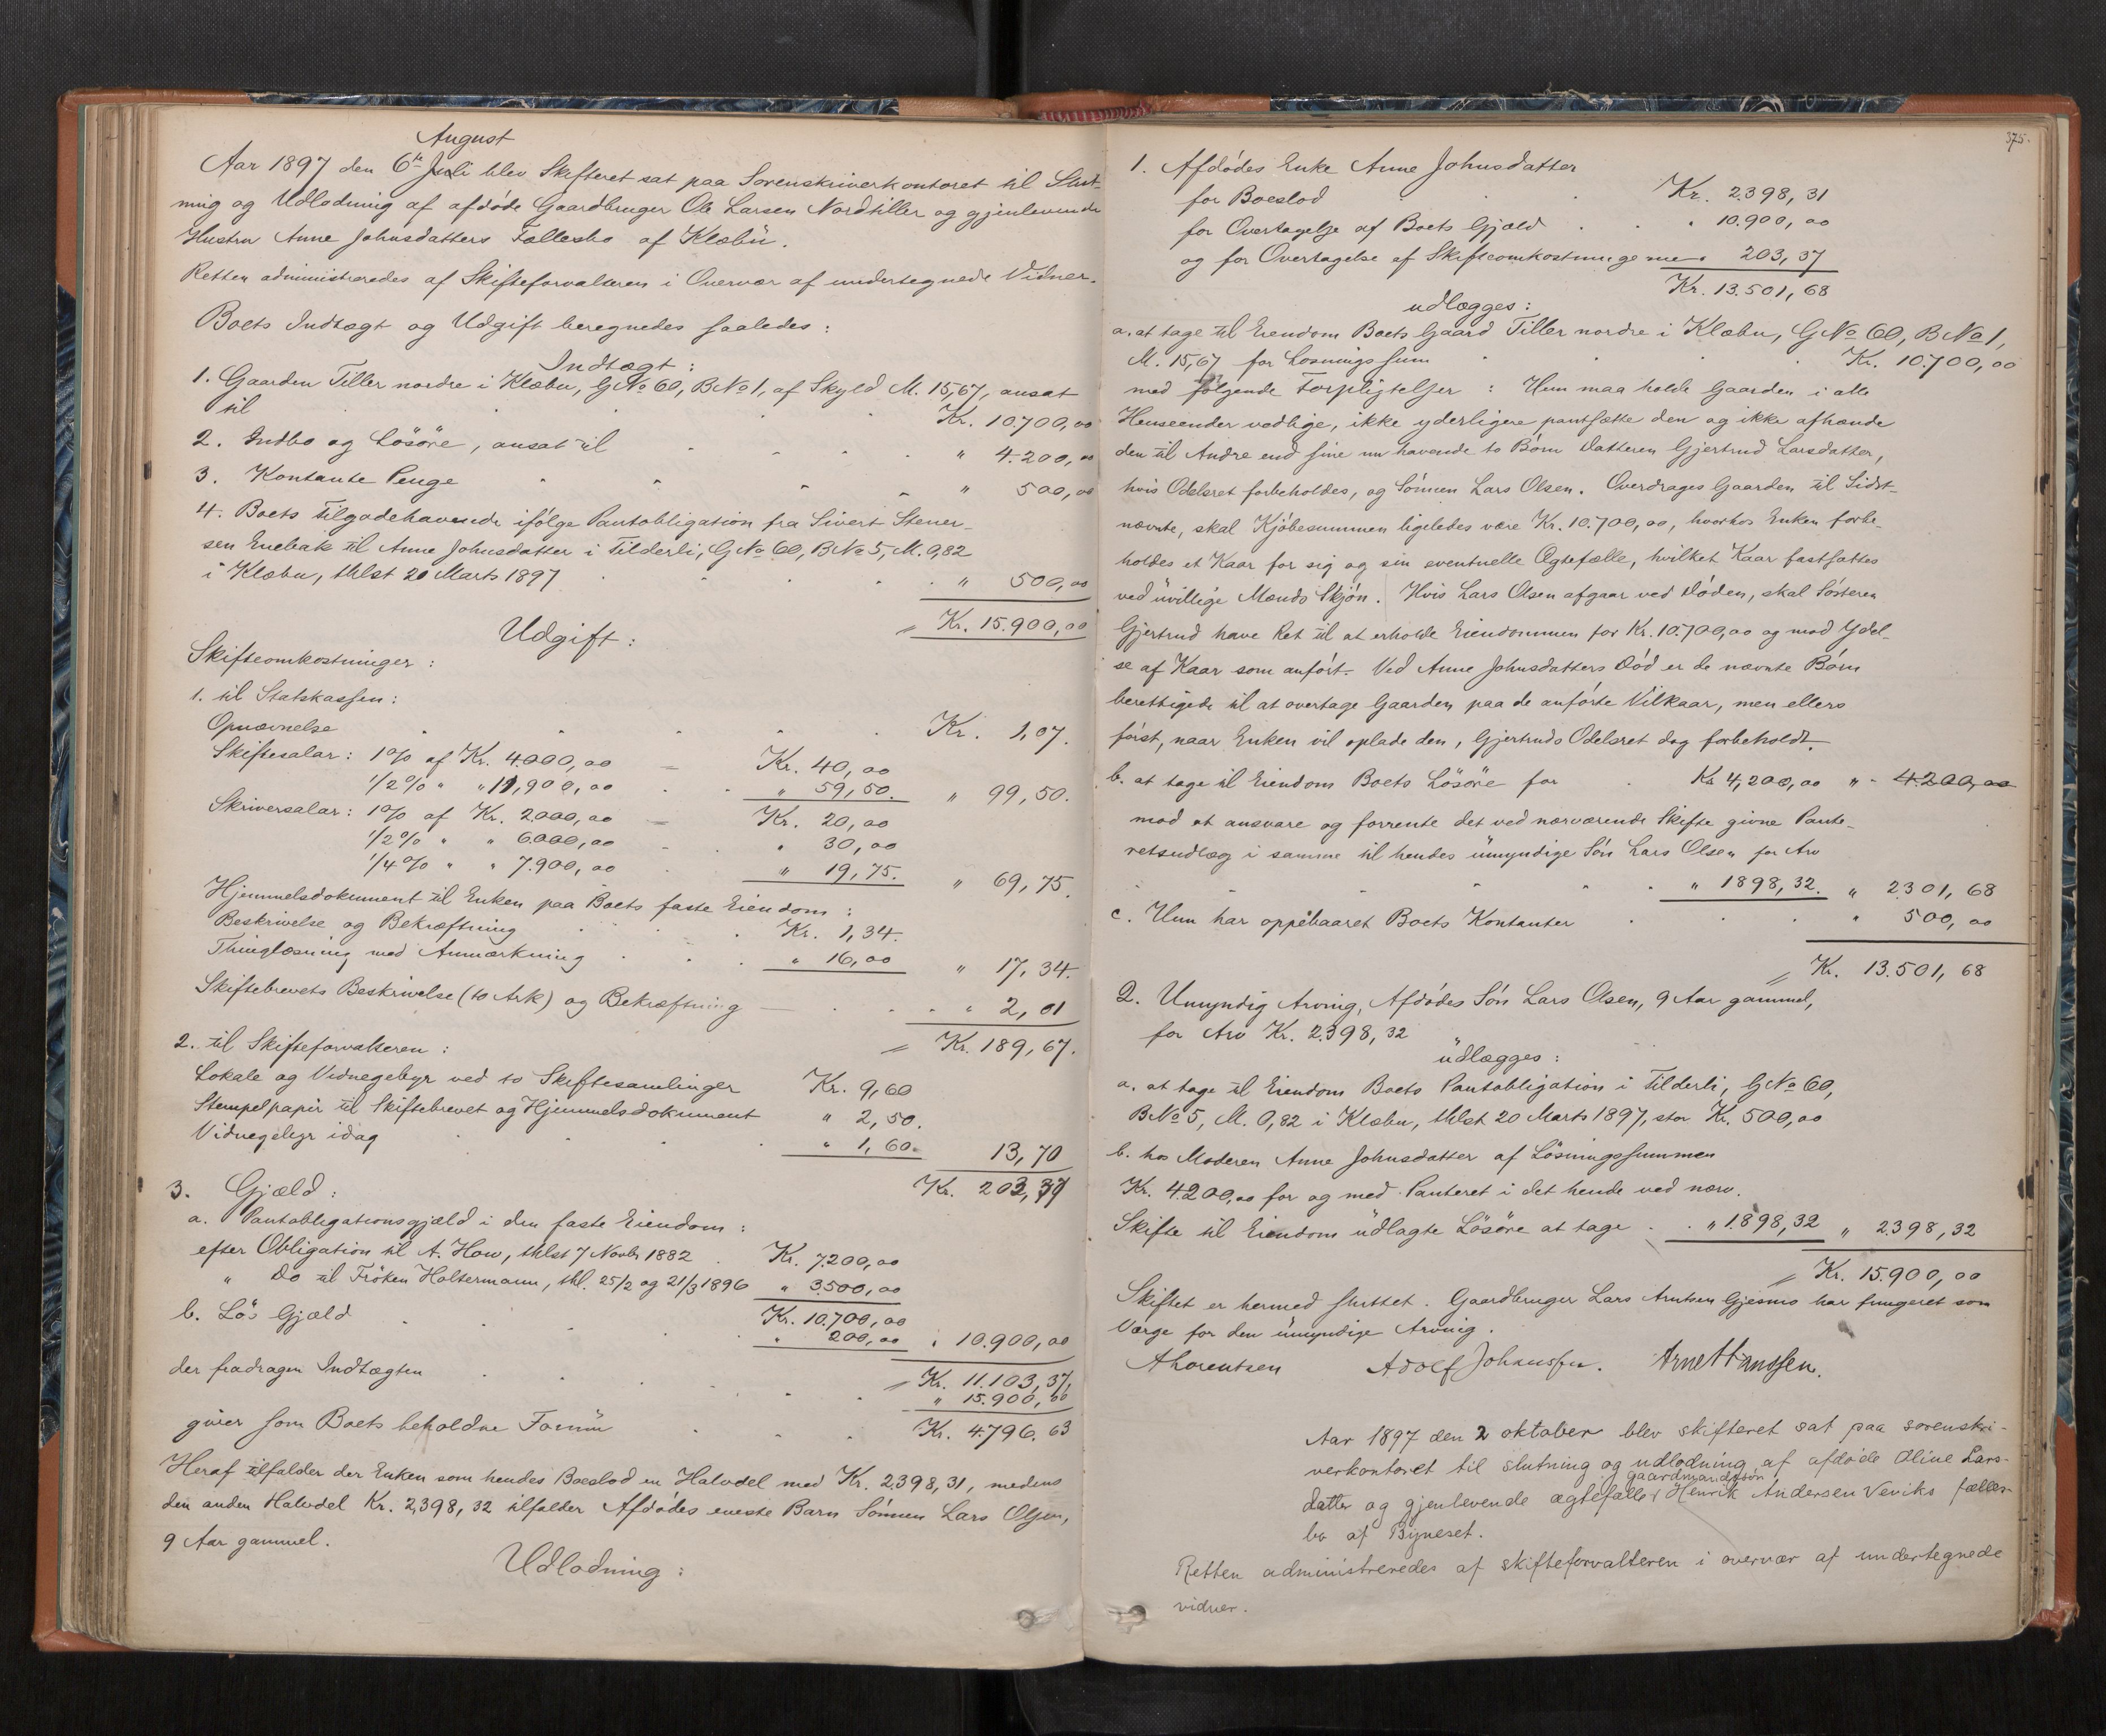 August
Aar 1897 den 6te Juli blev Skifteret sat paa Sorenskriverkontoret til Slut-
ning og Udlodning af afdöde Gaardbruger Ole Larsen Nordtiller og gjenlevende
Hustru Anne Johnsdatters Fællesbo af Klæbu.
Retten administreredes af Skifteforvalteren i Overvær af undertegnede Vidner.
Boets Indtægt og Udgift beregnedes saaledes:
Indtægt:
1. Gaarden Tiller nordre i Klæbu, G No 60, B No 1, af Skyld M. 15,67, ansat
til Kr. 10.700,00
2. Indbo og Lösöre, ansat til " 4.200,00
3. Kontante Penge " 500,00
4. Boets Tilgodehavende ifölge Pantobligation fra Sivert Stener-
sen Enebak til Anne Johnsdatter i Tilderli, G No 60, B No 5, M. 0,82
i Klæbu, thlst 20 Marts 1897 " 500,00
Kr. 15.900,00
Udgift:
Skifteomkostninger:
1. til Statskassen:
Opnævnelse Kr. 1,07.
Skiftesalar: 1% af Kr. 4.000,00 — Kr. 40,00
1/2% " " 11,900,00 " 59,50. " 99,50.
Skriversalar: 1% af Kr. 2.000,00 — Kr. 20,00
1/2% " " 6.000,00 " 30,00
1/4% " " 7.900,00 " 19,75. " 69,75.
Hjemmelsdokument til Enken paa Boets faste Eiendom:
Beskrivelse og Bekræftning Kr. 1,34.
Thinglæsning med Anmærkning " 16,00 " 17,34.
Skiftebrevets Beskrivelse (to Ark) og Bekræftning — " 2,01
Kr. 189,67.
2. til Skifteforvalteren:
Lokale og Vidnegebyr ved to Skiftesamlinger Kr. 9,60
Stempelpapir til Skiftebrevet og Hjemmelsdokument " 2,50.
Vidnegebyr idag " 1,60. 13,70
Kr. 203,37
3. Gjæld:
a. Pantobligationsgjæld i den faste Eiendom:
efter Obligation til A. How, thlst 7 Novbr 1882 Kr. 7.200,00
" Do til Fröken Holtermann, thl. 25/2 og 21/3 1896 " 3.500,00
Kr. 10.700,00
b. Lös Gjæld " 200,00 " 10.900,00
Kr. 11.103,37,
der fradragen Indtægten " 15.900,00
giver som Boets beholdne Formü Kr. 4.796.63
Heraf tilfalder der Enken som hendes Boeslod en Halvdel med Kr. 2.398,31, medens
den anden Halvdel Kr. 2,398,32 tilfalder Afdödes eneste Barn Sönnen Lars Olsen,
9 Aar gammel.
Udlodning:
375.
1. Afdödes Enke Anne Johnsdatter
for Boeslod Kr. 2.398,31
for Overtagelse af Boets Gjæld " 10.900,00
og for Overtagelse af Skifteomkostningerne " 203,37
Kr. 13.501,68
udlægges:
a. at tage til Eiendom Boets Gaard Tiller nordre i Klæbu, G No 60, B No 1,
M. 15,67 for Løsningssum Kr. 10.700,00
med fölgende Forpligtelser: Hun maa holde Gaarden i alle
Henseender vedlige, ikke yderligere pantsætte den og ikke afhænde
den til Andre end sine nu havende to Börn Datteren Gjertrud Larsdatter,
hvis Odelsret forbeholdes, og Sönnen Lars Olsen. Overdrages Gaarden til Sidst-
nævnte, skal Kjöbesummen ligeledes være Kr. 10.700,00, hvorhos Enken forbe-
holdes et Kaar for sig og sin eventuelle Ægtefælle, hvilket Kaar fastsattes
ved uvillige Mænds Skjön. Hvis Lars Olsen afgaar ved Döden, skal Sösteren
Gjertrud have Ret til at erholde Eiendommen for Kr. 10.700,00 og mod Ydel-
se af Kaar som anfört. Ved Anne Johnsdatters Död er de nævnte Börn
berettigede til at overtage Gaarden paa de anförte Vilkaar, men ellers
först, naar Enken vil oplade den, Gjertruds Odelsret dog forbeholdt.
b. at tage til Eiendom Boets Lösöre for Kr 4,200,00 " 4.200,00
mod at ansvare og forrente det ved nærværende Skifte givne Pante-
retsudlæg i samme til hendes umyndige Sön Lars Olsen for Arv
" 1898,32. " 2.301,68
c. Hun har oppebaaret Boets Kontanter " 500,00
Kr. 13.501,68
2. Umyndig Arving, Afdödes Sön Lars Olsen, 9 Aar gammel,
for Arv Kr. 2.398,32
udlægges:
a. at tage til Eiendom Boets Pantobligation i Tilderli, G No 60,
B No 5, M. 0,82 i Klæbu, thlst 20 Marts 1897, stor Kr. 500,00
b. hos Moderen Anne Johnsdatter af Lösningssummen
Kr. 4.200,00 for og med Panteret i det hende ved nærv.
Skifte til Eiendom udlagte Lösöre at tage " 1.898,32 " 2.398,32
Kr. 15.900,00
Skiftet er hermed sluttet. Gaardbruger Lars Arntsen Gjesmo har fungeret som
Værge for den umyndige Arving.
A Lorentsen Adolf Johnussen. Arne Hanssen.
Aar 1897 den 2 oktober blev skifteret sat paa sorenskri-
verkontoret til slutning og udlodning af afdøde Oline Lars-
gaardmandssøn
datter og gjenlevende ægtefælle Henrik Andersen Veviks fælles-
bo af Byneset.
Retten administreredes af skifteforvalteren i overvær af undertegnede
vidner.